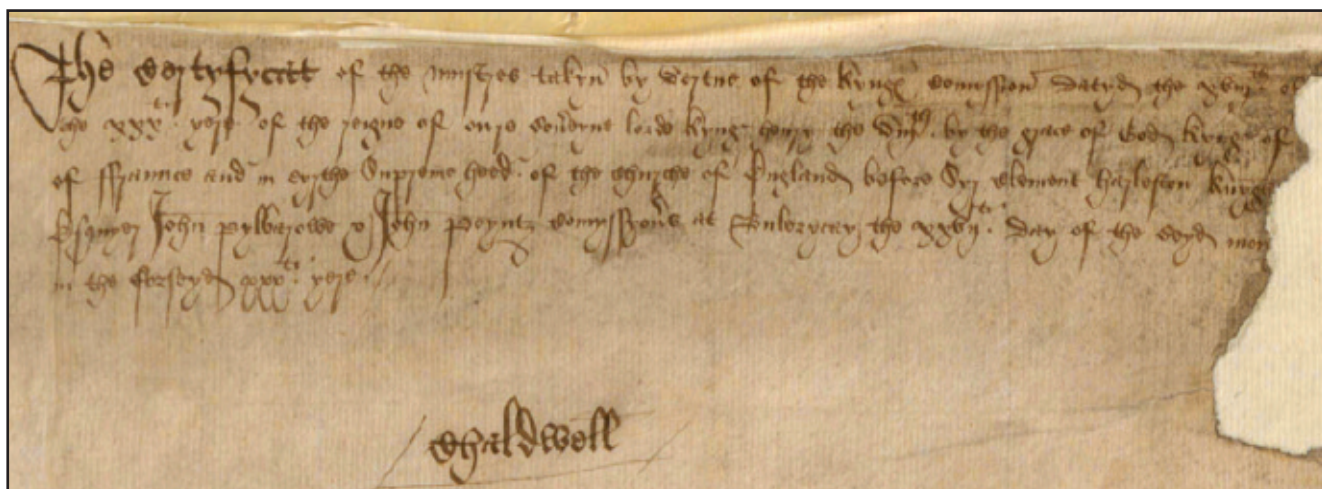 The Certyfycat of the mustres takyn by vertue of the kynges Comyssion datyd the xviijth
the xxxti yere of the reigne of oure lorde kyng henry the viijth by the grace of God kynge of
of ffraunce and in erthe Supreme hedd of the churche of Englande before Syr Clement harleston
Esquyer John pylbarowe & John poyntz at the day of the seyd mon
in the forseyd xxxti yere
Chaldwell